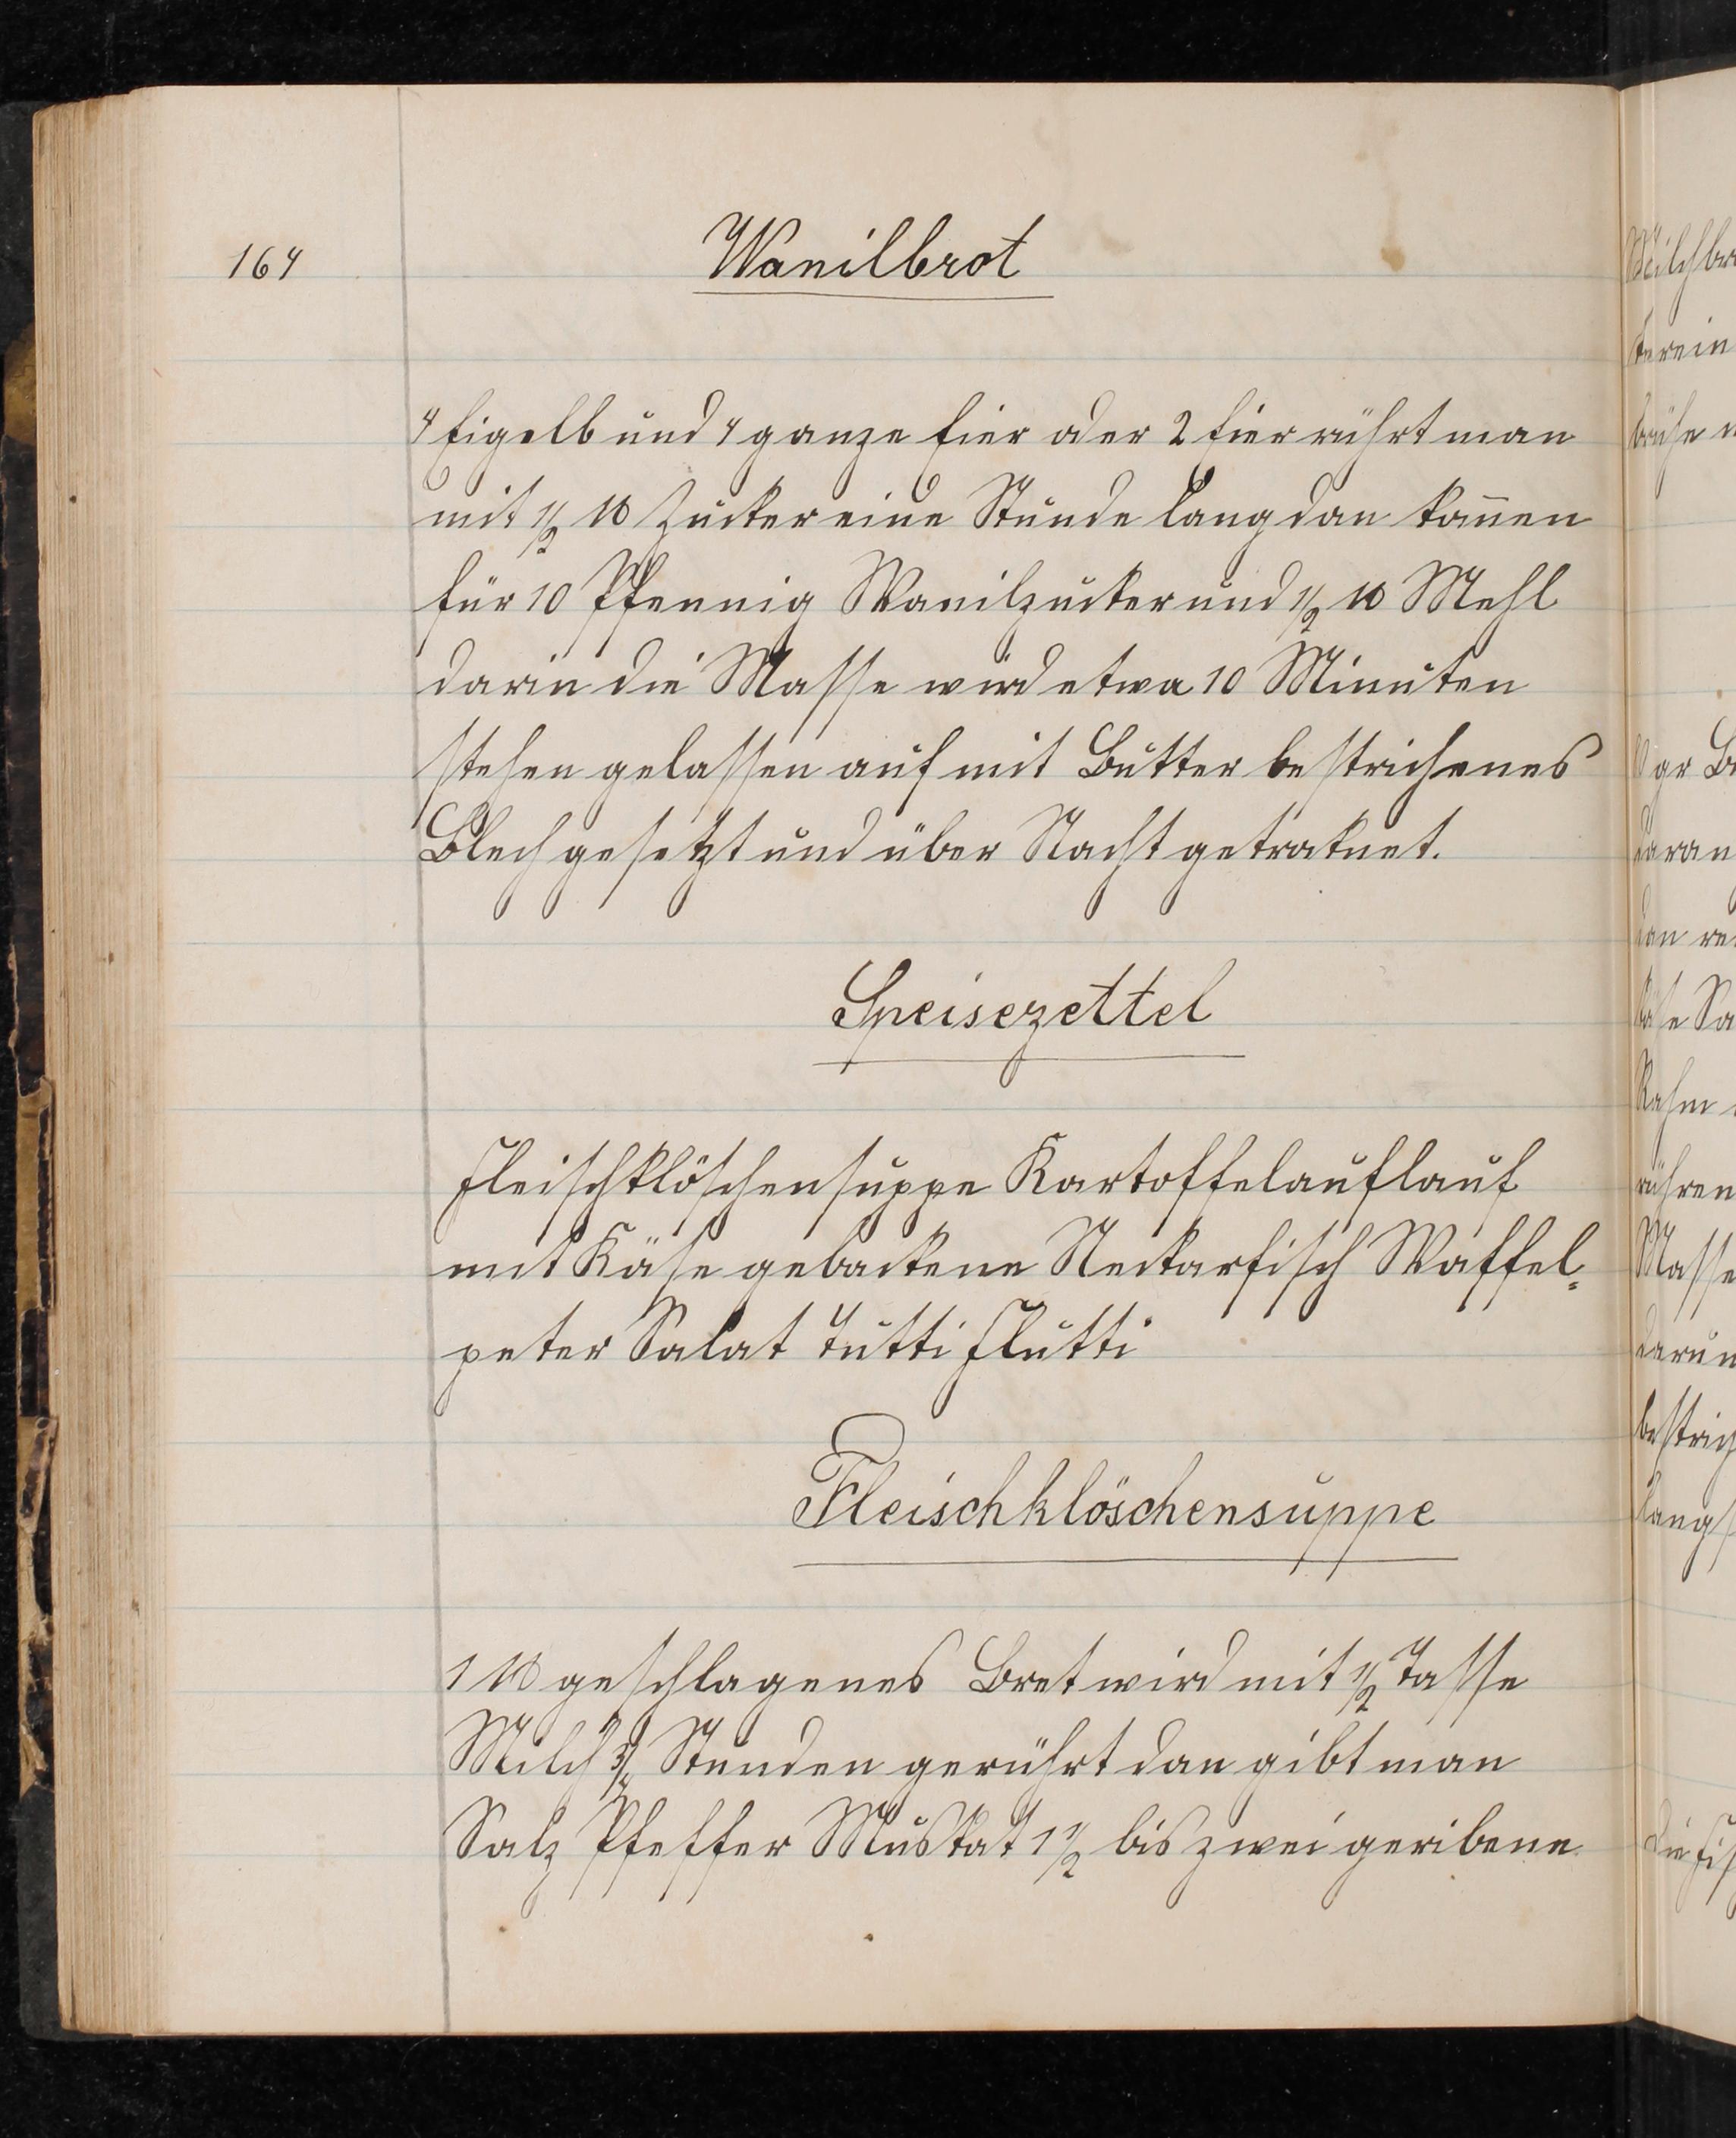 164
Wanilbrot
4 Eigelb und 4 ganze Eier oder 2 Eier rührt man
mit ½ ℔ Zucker eine Stunde lang dan kom̄en
für 10 Pfennig Wanilzucker und ½ ℔ Mehl
darin die Masse wird etwa 10 Minuten
stehen gelassen auf mit Butter bestrichenes
Blech gesetzt und über Nacht getroknet.
Speisezettel
Fleischklöschensuppe Kartoffelauflauf
mit Käse gebackene Neckarfisch Waffel=
peter Salat Tutti Flutti
Fleischklöschensuppe
1 ℔ geschlagenes Bret wird mit ½ Tasse
Milch ¾ Stunden gerührt dan gibt man
Salz Pfeffer Muskat 1 ½ bis zwei geribene